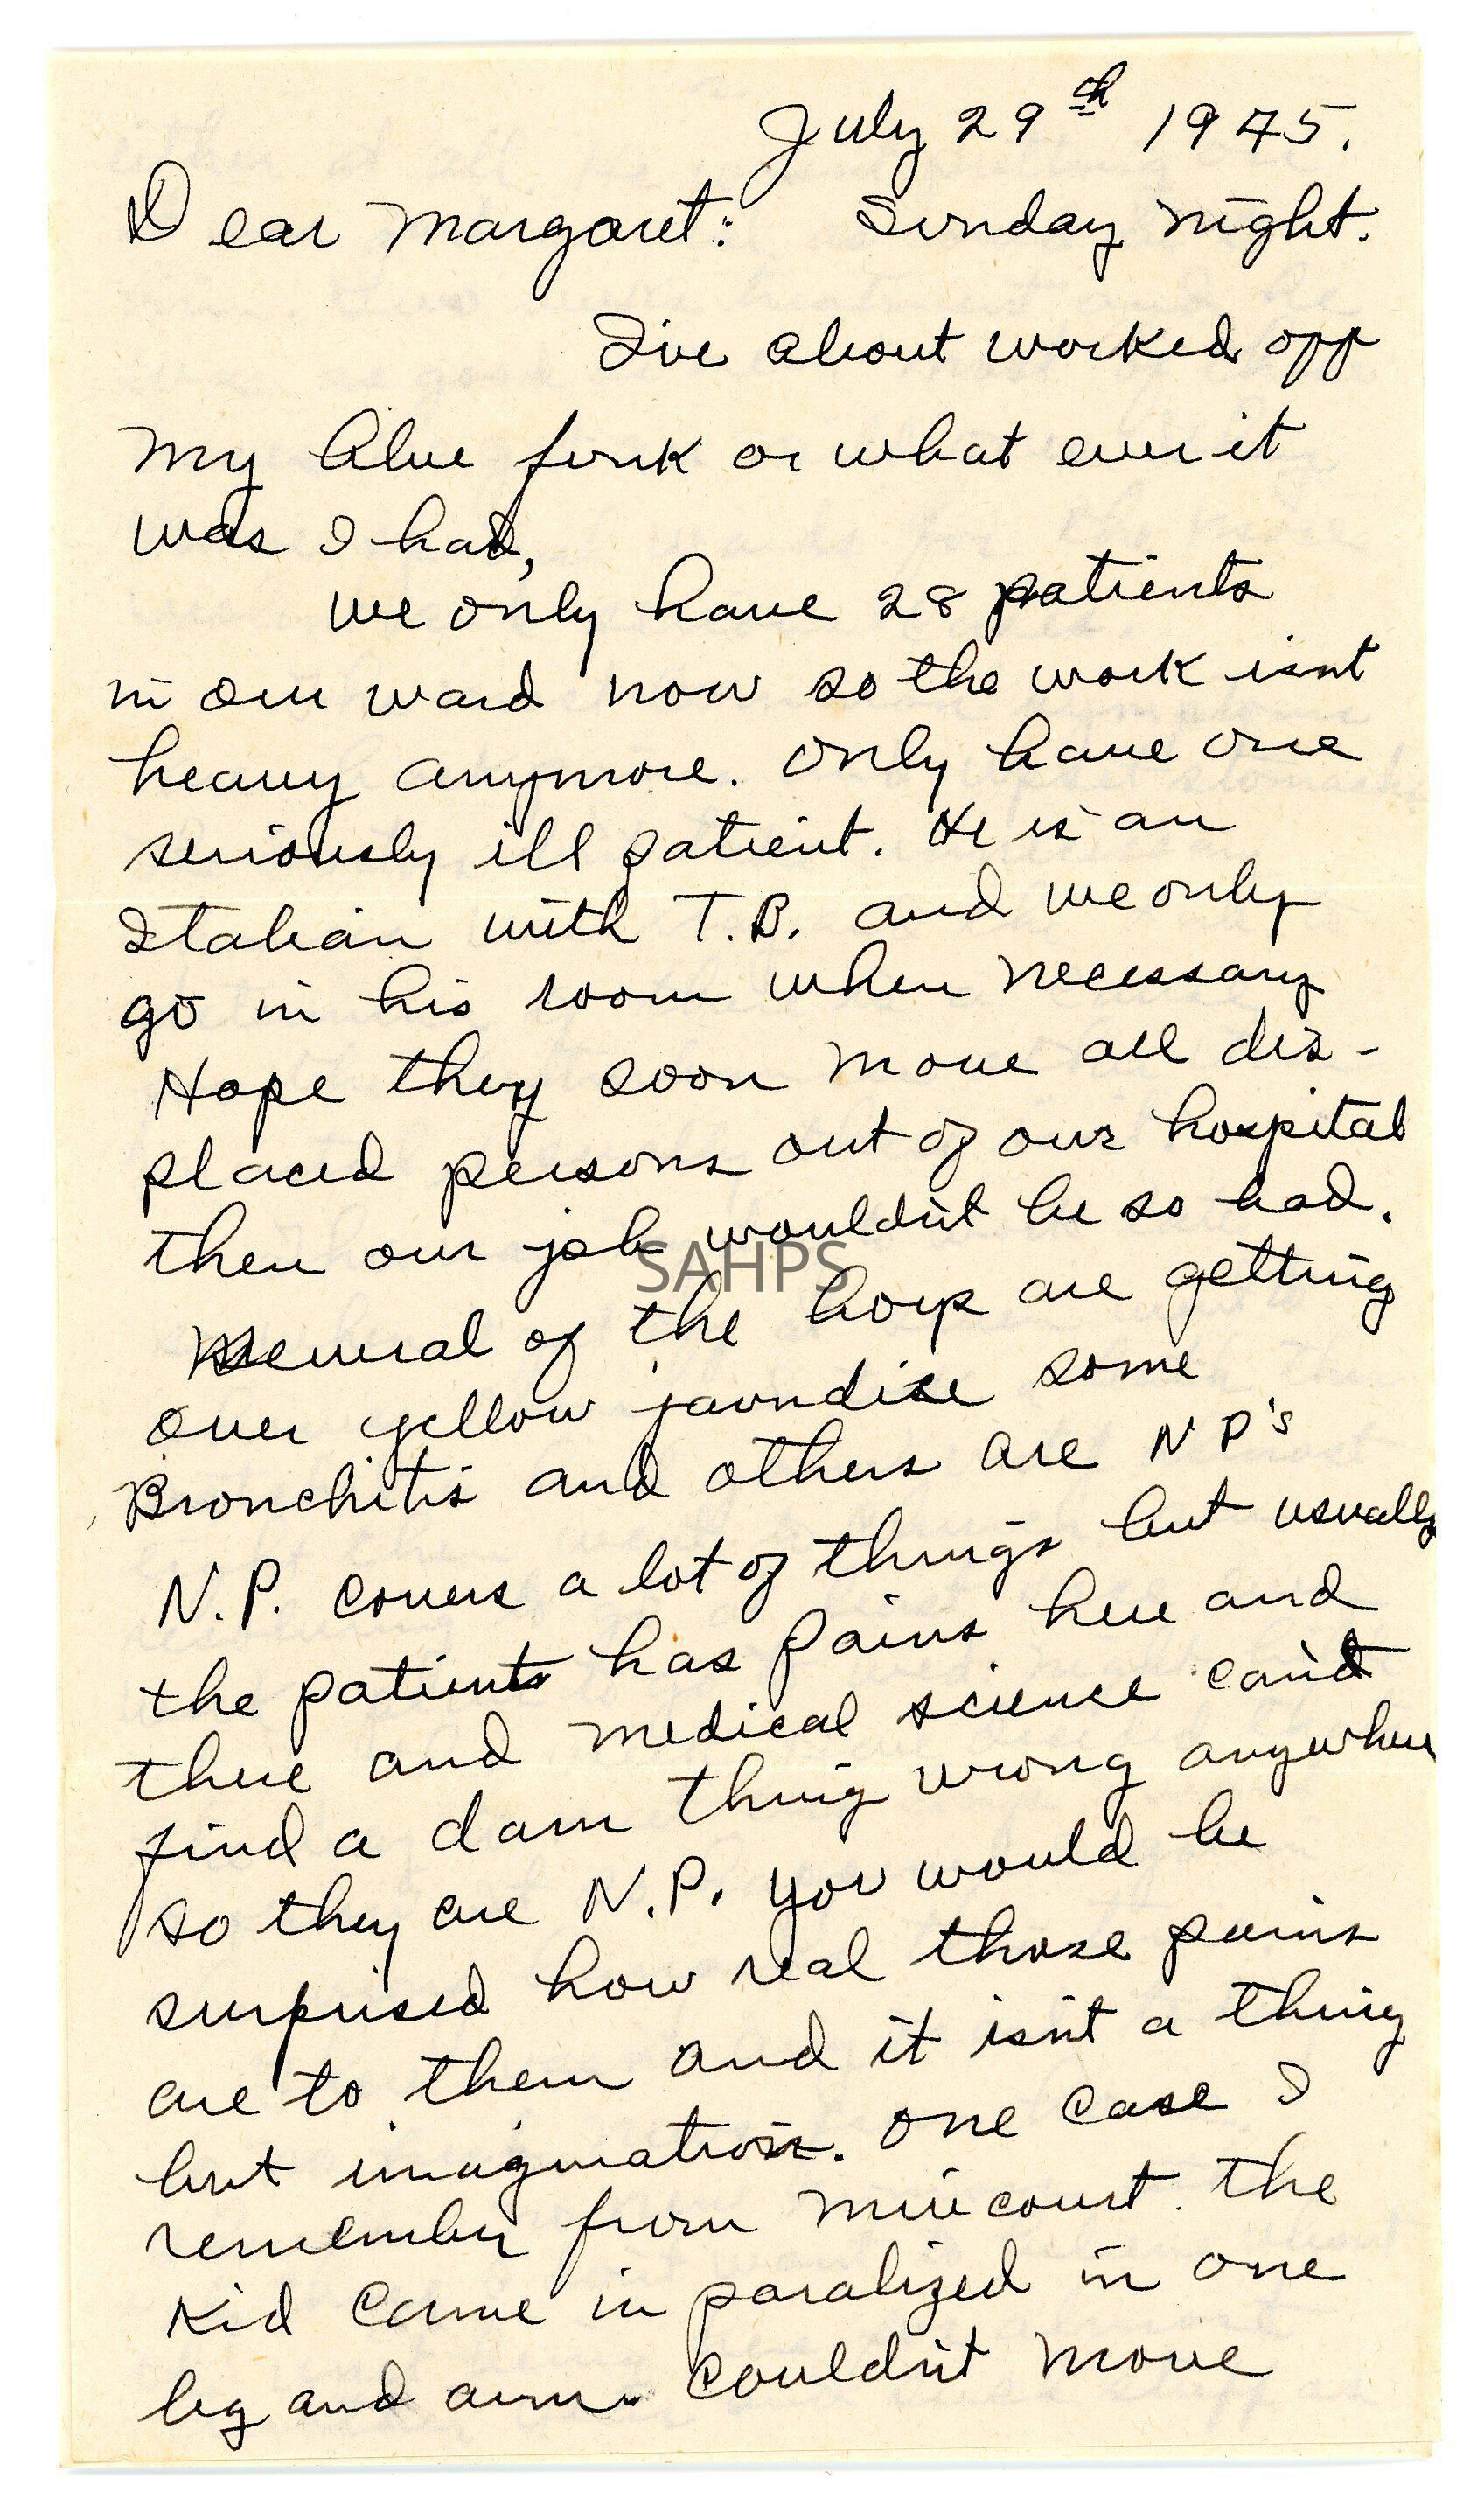 July 29th 1945.
Dear Margaret: Sunday night.
I've about worked off
my blue funk or what ever it
was I had,
we only have 28 patients
in our ward now so the work isnt
heavy anymore. Only have one
seriously ill patient. He is an
Italian with T.B. and we only
go in his room when necessary
Hope they soon move all dis-
placed persons out of our hospital
then our job wouldn't be so bad.
SAHPS
several of the boys are getting
over yellow jaundice some
Bronchitis and others are NP's
N.P. covers a lot of things but usually
the patients has pains here and
there and medical science can't
find a dam thing wrong anywhere
so they are N.P. you would be
surprised how real those pains
are to them and it isn't a thing
but imagination. One case I
remember from Mirecourt. The
kid came in paralized in one
leg and arm. Couldn't move